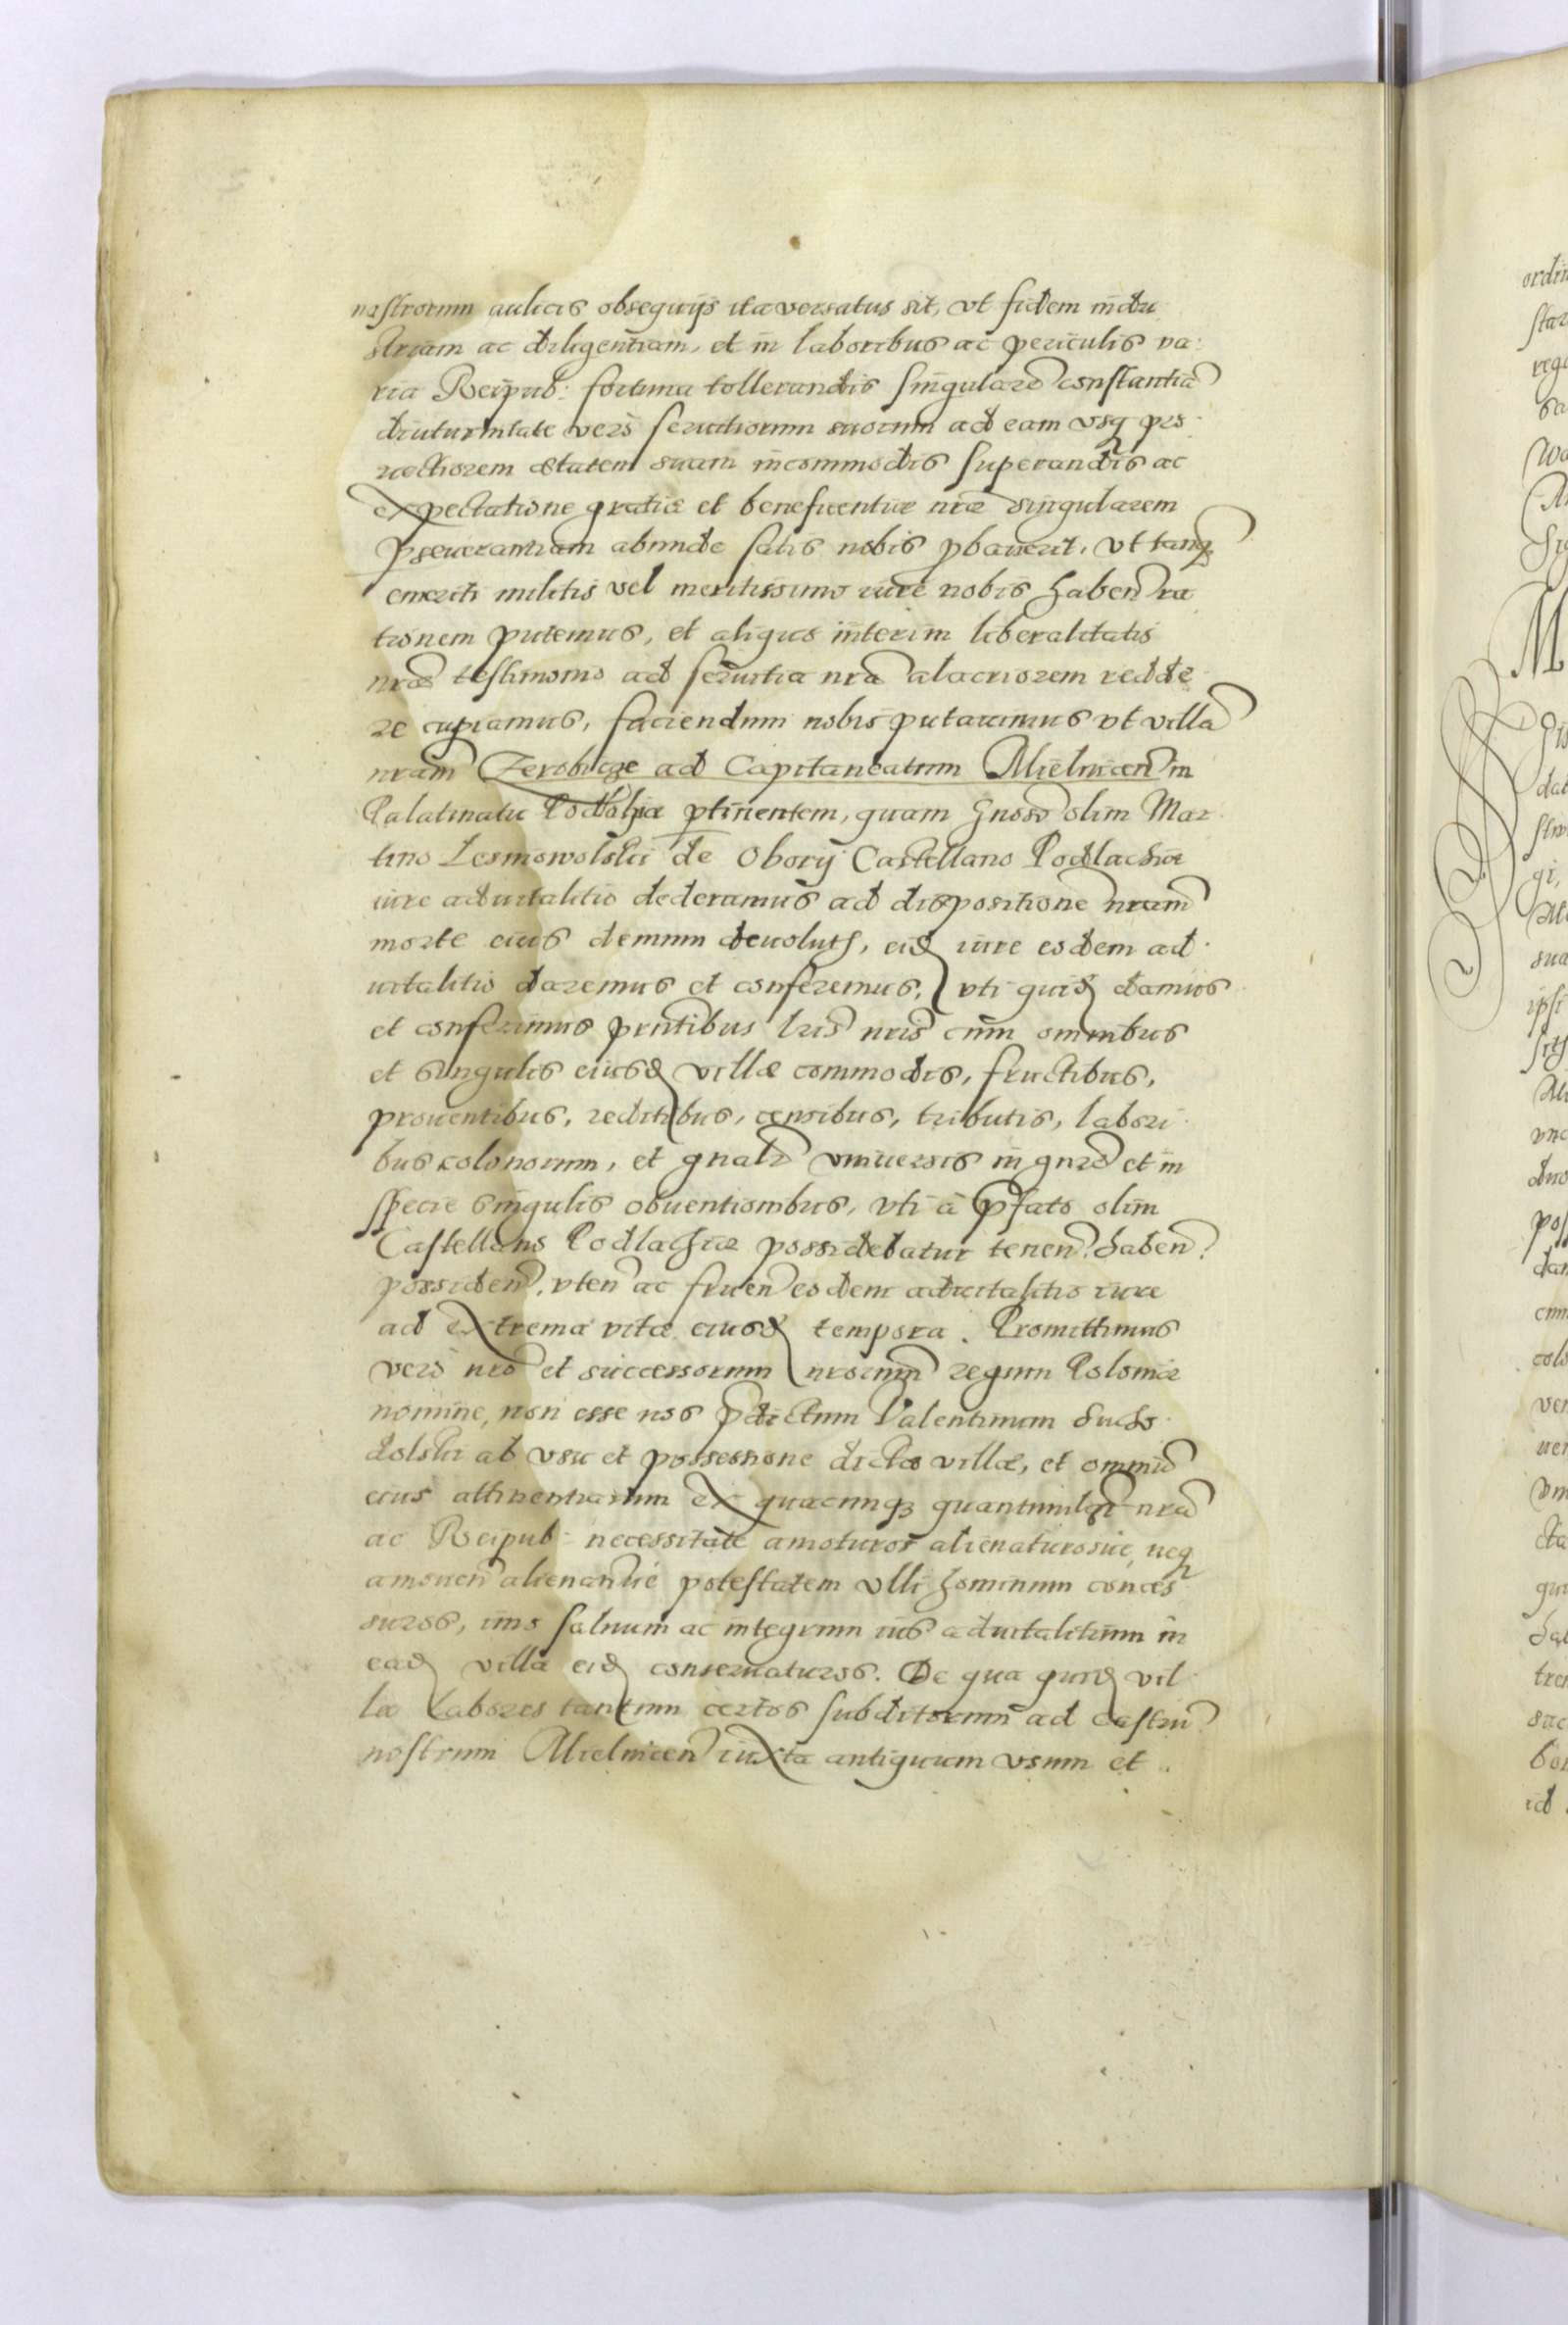 nostrorum aulicis obsequijs ita versatus sit, vt fidem indu
striam ac diligentiam, et in laboribus ac periculis va:
ria Reipub: fortuna tollerandis singulare constantia
diuturnitate verò seruitiorum suorum ad eam vsq pro
vectiorem ætatem suam incommodis superandis ac
expectatione gratiæ et beneficentiæ nræ singularem
pseuerantiam abunde satis nobis pbauerit, vt tanq
emeriti militis vel meritissimo iure nobis haben ra
tionem putemus, et aliquo interim liberalitatis
nræ testimonio ad seruitia nra alacriorem redde
re cupiamus, faciendum nobis putauimus vt villa
nram Zerobicze ad Capitaneatum Mielnicen in
Palatinatu Podlachiæ ptinentem, quam Gnoso olim Mar
tino Lesniowolski de Obory Castellano Podlachiæ
iure aduitalitio dederamus ad dispositione nram
morte eius demum deuoluts, eid iure eodem ad
uitalitio daremus et conferemus, vti quid damus
et conferimus prntibus lris nris cum omnibus
et singulis eiusd villæ commodis, fructibus,
prouentibus, reditibus, censibus, tributis, labori
bus colonorum, et gnalr vniuersis in gnre et in
specie singulis obuentionibus, vti à pfato olim
Castellano Podlachiæ possidebatur tenen: haben:
possiden, vten ac fruen eodem aduitalitio iure
ad extrema vitæ eiusd tempora. Promittimus
verò nro et successorum nrorum regum Poloniæ
nomine, non esse nos pdictum Valentinum Sucho
dolski ab vsu et possessione dictæ villæ, et omniu
eius attinentiarum ex quacunq quantumlibet nra
ac Reipub: necessitate amoturos alienaturosue, neq
amouen alienanue potestatem vlli hominum conces
suros, imo saluum ac integrum ius aduitalitium in
ead villa eid conseruaturos. De qua quid vil
læ labores tantum certos subditorum ad castru
nostrum Mielnicen iuxta antiquum vsum et